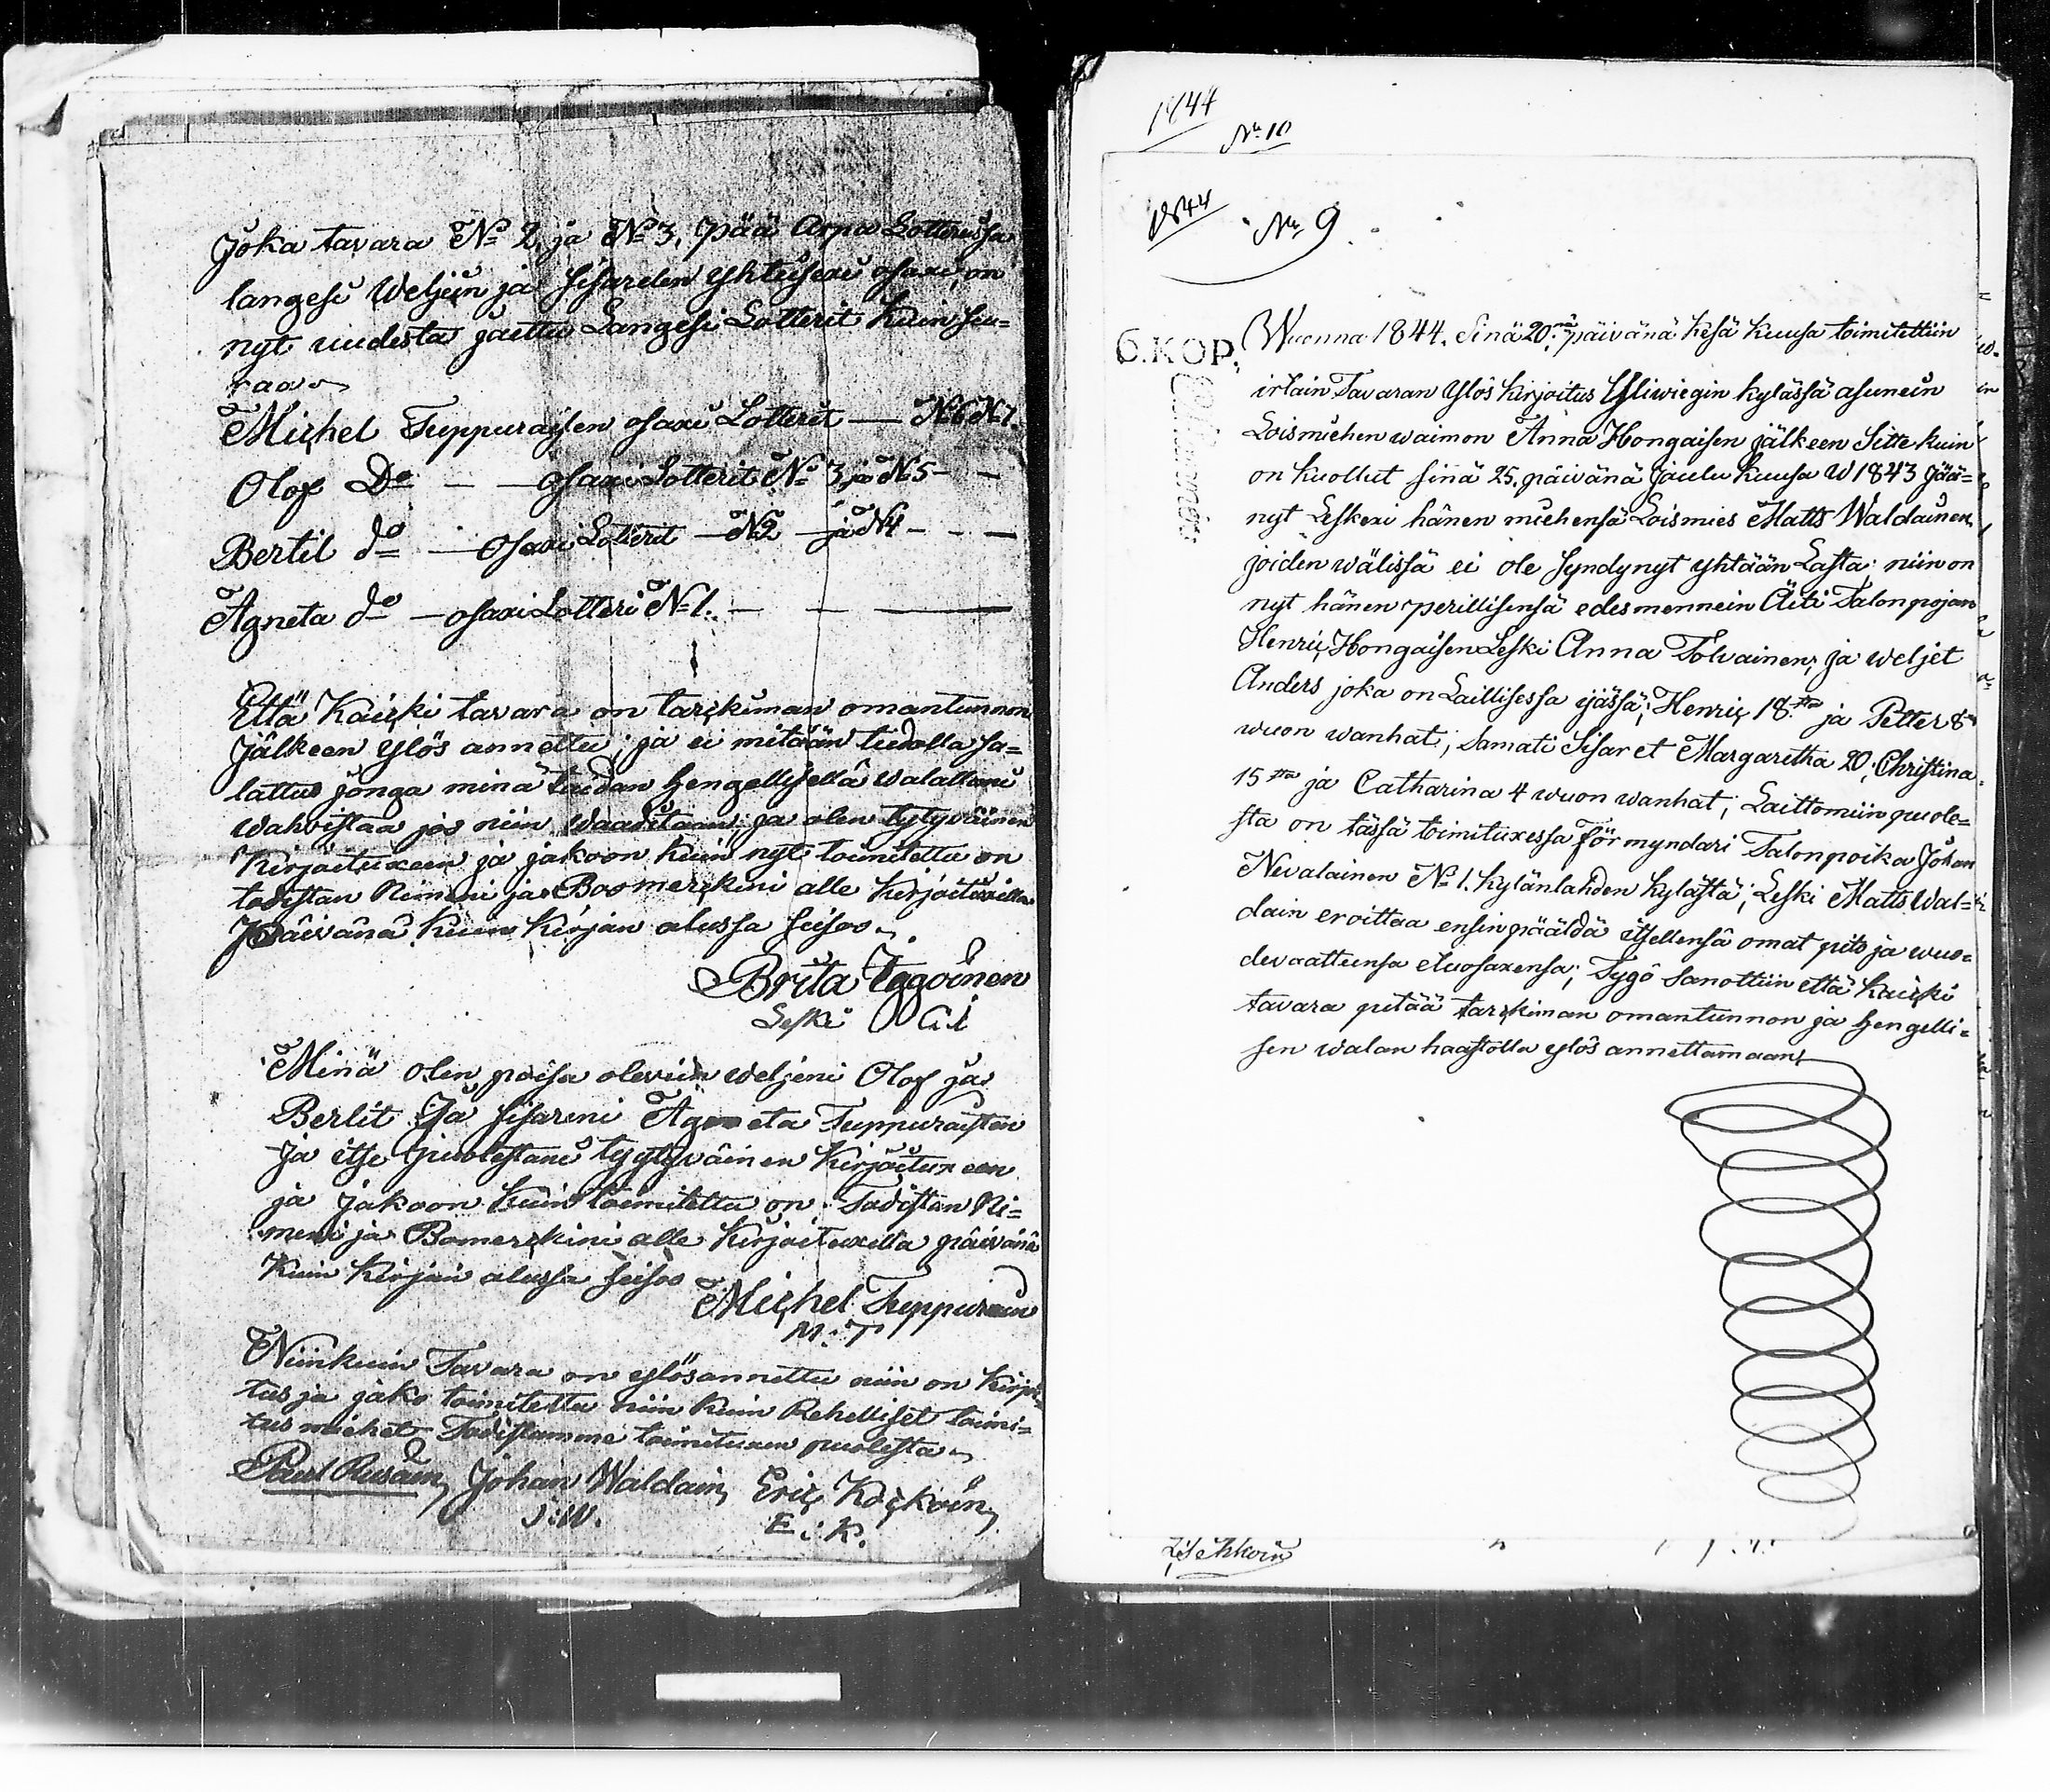 Joka tavara No 2, ja No 3, pää Arpa Lotterissa
langesi Weljein ja sisarden yhteisexi osaxi, on
nyt uudesta jaettu Langesi Lotterit kuin seu=
raa
Michel Tuppuraisen osaxi Lotterit — No 6 No 7.
Olof Do — — osaxi Lotterit No 3, ja No 5 — —
Bertil do — osaxi Lotterit — No 2 — ja No 4 — — —
Agneta do — osaxi Lotteri No 1. — — —
Että Kaicki tavara on tarckiman omantunnon
jälkeen ylös annettu; ja ei mitään tiedolla sa=
lattu jonga minä taidan hengellisellä walallani
wahvistaa jos niin waaditann; ja olen tytyväinen
Kirjoituxeen ja jakoon kuin nyt toimitettu on
todistan Nimeni ja Boomerckini alle kirjoituxilla
Päivänä kuin kirjan alussa seisoo
Brita Iggoinen
Leski
Minä olen poisa olevien weljeni Olof ja
Bertit Ja sisareni Agneta Tuppuraisten
ja itse puolestani tyytyväinen Kirjoituxeen
ja jakoon kuin toimitettu on Todistan Ni=
meni ja Bomerckini alle kirjoituxella päivänä
kuin kirjan alussa seisoo
Michel Tuppurain
M: T
Niinkuin Tavara on ylösannettu niin on kirjoi=
tus ja jako toimitettu niin kuin Rehelliset toimi=
tus miehet Todistamme toimituxen puolesta
Paul Rusain, Johan Waldain, Eric Kockoin,
J: W. E: K.
1844
No 10
1844 No 9
6.KOP.
Wuonna 1844. Sinä 20:nä päivänä kesä kuusa toimitettiin
irtain Tavaran Ylös kirjoitus Yliwiegin kylässä asunein
Loismiehen waimon Anna Hongaisen jälkeen Sitte kuin
on kuollut sinä 25. päivänä Joulu kuusa W 1843 Jää=
nyt Leskexi hänen miehensä Loismies Matts Waldainen,
joiden wälissä ei ole syndynyt yhtään Lasta: niin on
nyt hänen perillisensä edesmennein Äiti Talonpojan
Henric Hongaisen Leski Anna Tolvainen; ja weljet
Anders joka on Laillisessa ijässä; Henric 18:sta ja Petter 8
wuon wanhat; Samati Sisaret Margaretha 20; Christina
15:sta ja Catharina 4 wuon wanhat; Laittomiin puole=
sta on tässä toimituxessa Förmyndari Talonpoika Johan
Nevalainen No 1. kylänlahden kylästä; Leski Matts Wal=
dain eroittaa ensin päälдä itsellensä omat pito ja wuo=
devaatteensa etuosaxensa; Tygö Sanottiin että kaicki
tavara pitää tarckiman omantunnon ja hengelli=
sen walan haastolla ylös annettamaan